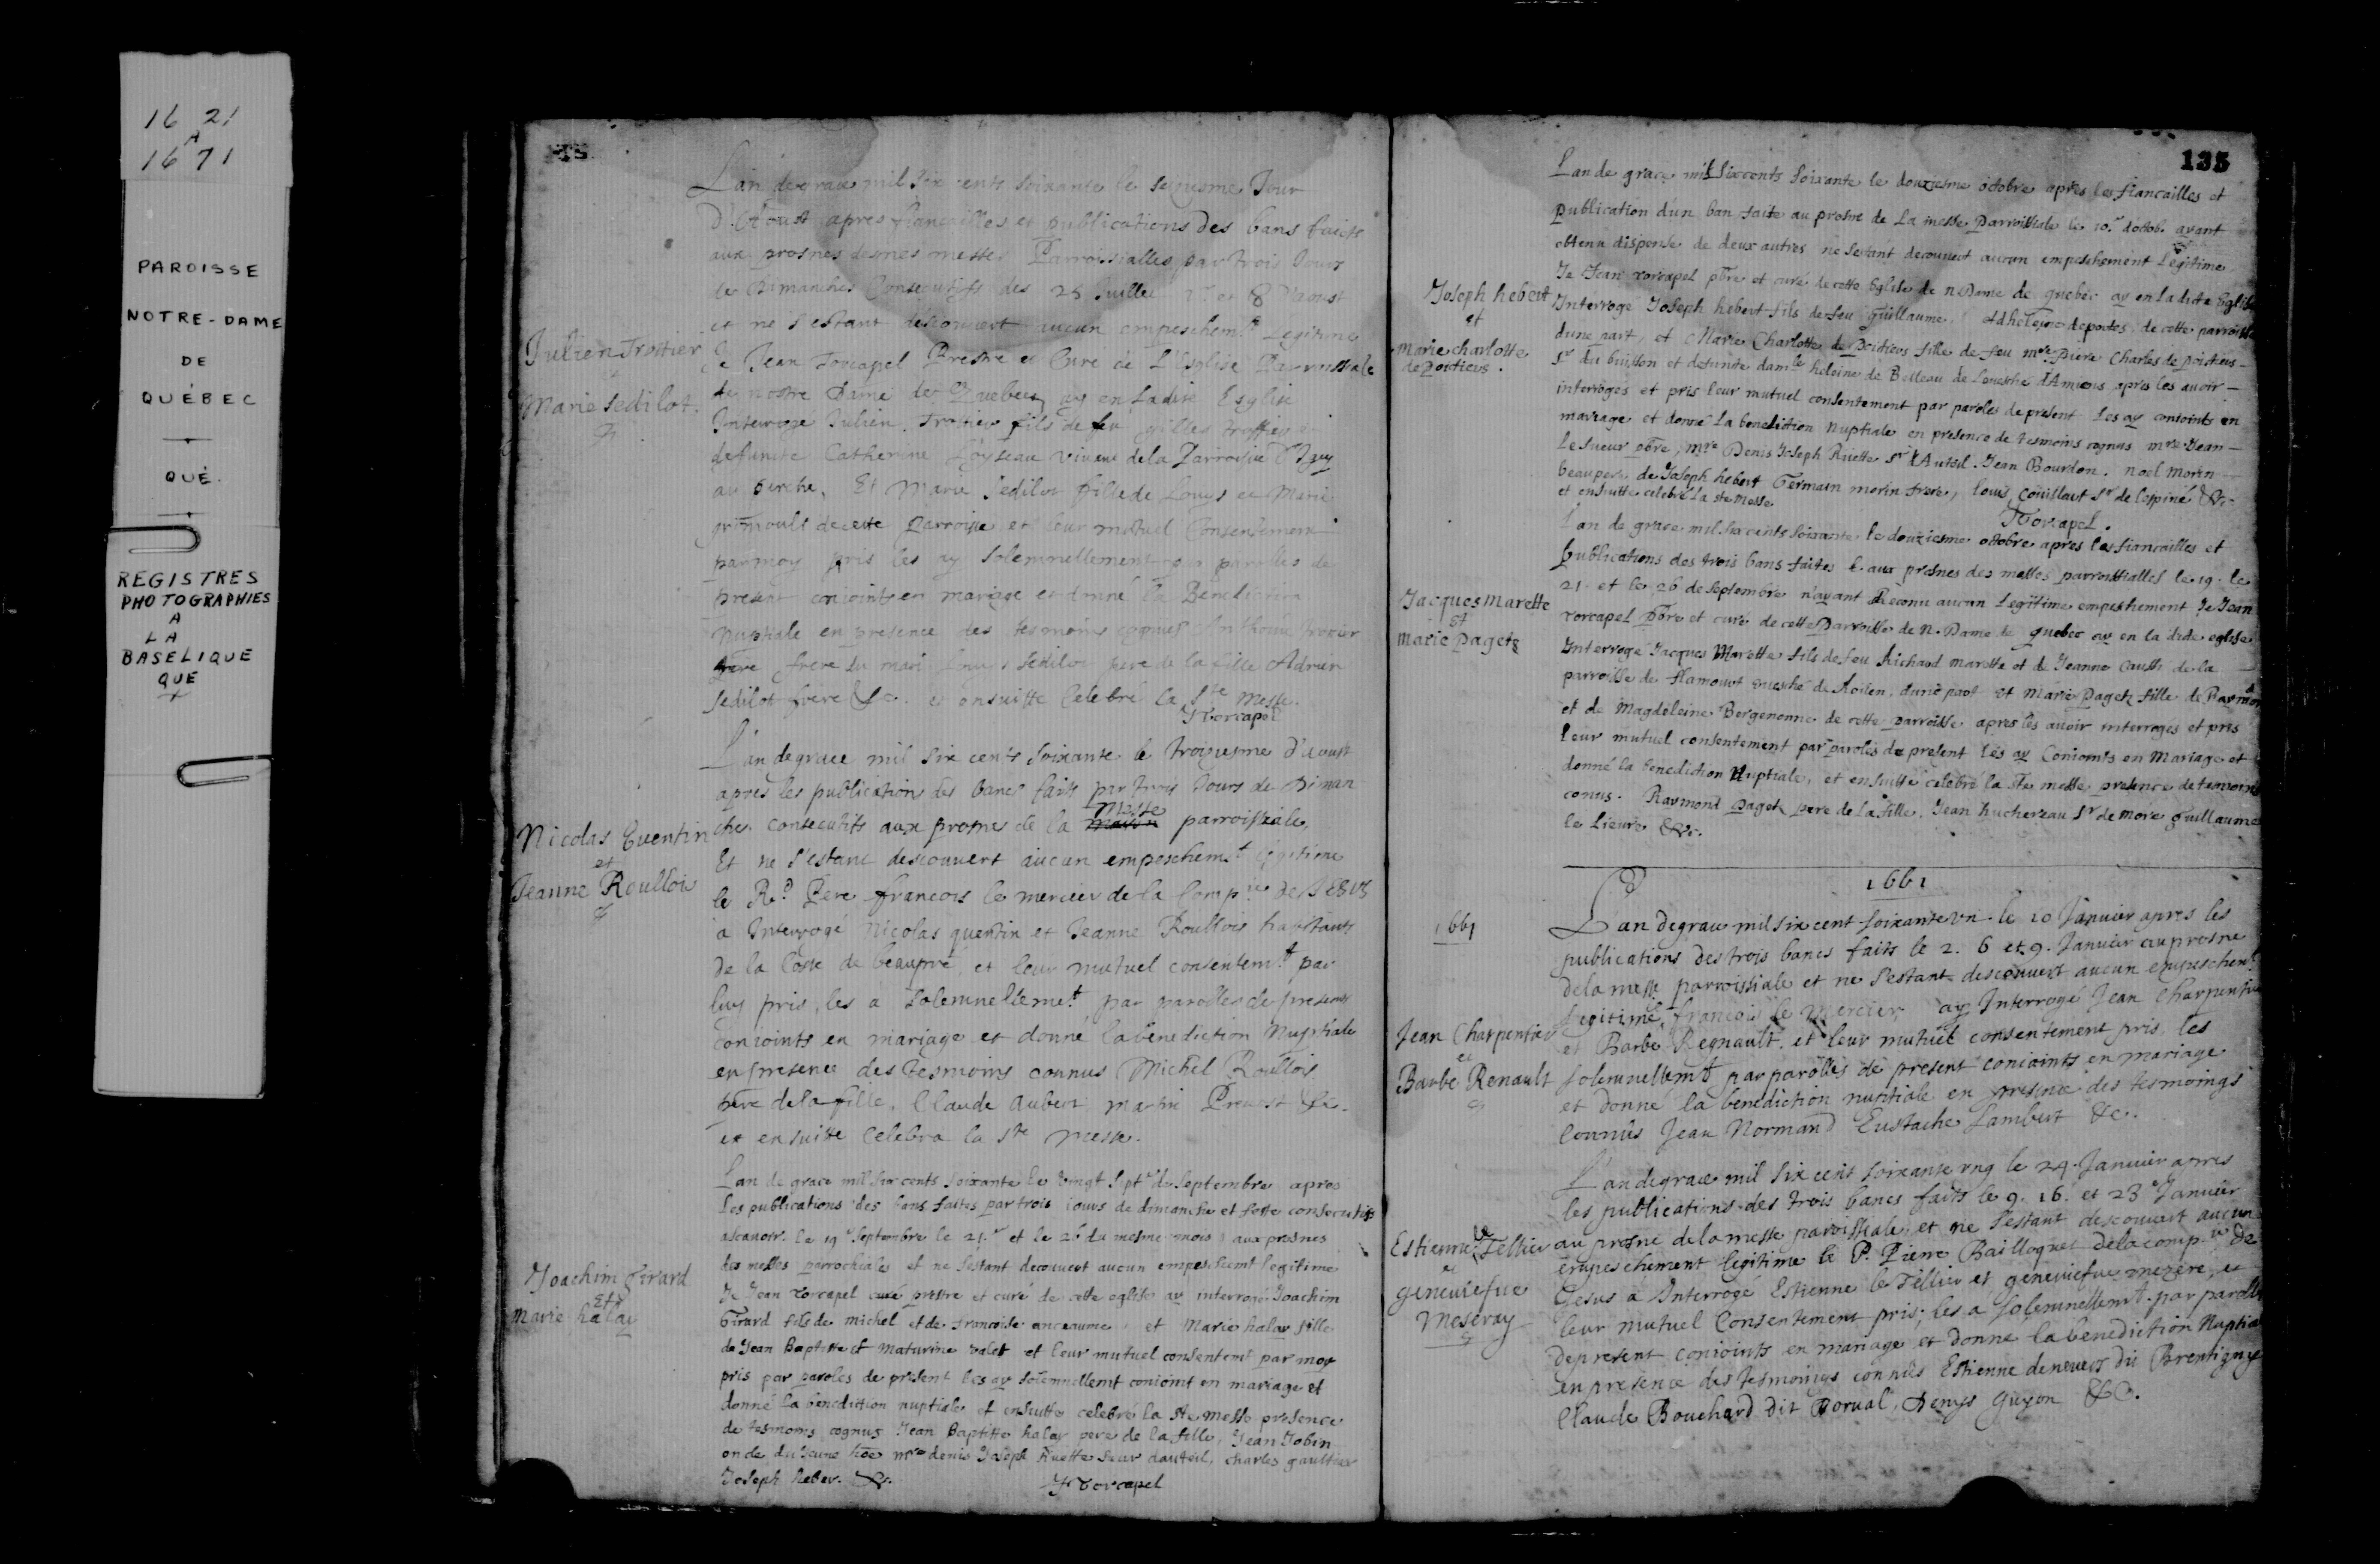 16 21
A
16 71
PAROISSE
NOTRE-DAME
DE
QUÉBEC
QUÉ.
REGISTRES
PHOTOGRAPHIES
A
LA
BASELIQUE
QUE
L'an de grace mil six cents soixante le seziesme Jour
d'Aoust apres fiancailles et publications des bans faicts
aux prosnes de mes messes Parroissialles par trois Jours
de Dimanches Consecutifs des 25 Juillet et 8 d'aoust
et ne s'estant descouvert aucun empeschemt Legitime
Julien Trottier
et
Marie Sedilot.
Je Jean Torcapel Prestre et Curé de L'Esglise Parroissiale
de nostre Dame de Quebecq ay en ladite Esglise
Interrogé Julien Trottier fils de feu gilles trottier et
defuncte Catherine Loyseau vivans de la Parroisse d'Igny
au perche, Et Marie Sedilot fille de Louys et Marie
grimoult de cette Parroisse, et leur mutuel Consentement
par moy pris les ay solemnellement par parolles de
present conjoints en mariage et donné la Benediction
Nuptiale en presence des tesmoins cognus Anthoine trotier
frere du mari Louys Sedilot pere de la fille Adrien
Sedilot frere &c. et ensuitte Celebré la Ste Messe.
JTorcapel
L'an de grace mil six cents soixante le troiziesme d'aoust
apres les publications des bancs faits par trois Jours de Diman
Nicolas Quentin
et
Jeanne Roullois
ches consecutifs aux prosnes de la messe parroissiale,
Et ne s'estant descouvert aucun empeschemt légitime
le Rd Pere francois le mercier de la Compie de JESUS
a Interrogé Nicolas quentin et Jeanne Roullois habitants
de la Coste de beaupré, et leur mutuel consentemt par
luy pris, les a solemnellemet par parolles de presents
conjoints en mariage et donné la benediction Nuptiale
en presence des tesmoins connus Michel Roullois
pere de la fille, Claude Aubert martin Prevost &c.
et ensuitte celebra la Ste messe.
Lan de grace mil six cents soixante le vingt septe de Septembre apres
Les publications des bans faites par trois iours de dimanche et feste consecutifs
ascavoir le 19e Septembre le 21e et le 26 du mesme mois aux prosnes
des messes parrochiales et ne sestant decouvert aucun empeschemt legitime
Joachim Girard
Et
Marie halay
Je Jean Torcapel curé prestre et curé de cette eglise ay interrogé Joachim
Girard fils de michel et de francoise anceaume et Marie halay fille
de Jean Baptiste et Maturine valet et leur mutuel consentemt par moy
pris par paroles de present les ay solennellemt conioint en mariage et
donné la benediction nuptiale et ensuitte celebré la Ste messe presence
de tesmoins cognus Jean Baptiste halay pere de la fille, Jean Jobin
oncle du Jeune hoē mre denis Joseph Ruette sieur dauteil, charles gaultier
Joseph heber &c.
JTorcapel
135
Lan de grace mil six cents soixante le douziesme octobre apres les fiancailles et
publication d'un ban faite au prosne de la messe Parroissiale le 10e doctob. ayant
obtenu dispense de deux autres ne sestant decouvert aucun empeschement Legitime
Je Jean Torcapel pbre et curé de cette Eglise de n. Dame de quebec ay en ladicte Eglise
Joseph hebert
et
Marie charlotte
de Poitiers.
Interrogé Joseph hebert fils de feu Guillaume et dheleine deportes, de cette parroisse
dune part, et Marie Charlotte de Poitiers fille de feu mre Piere Charles de poictiers
Sr du buisson et defunte damle heleine de Belleau de Levesché dAmiens apres les avoir
interrogés et pris leur mutuel consentement par paroles de present Les ay conioints en
mariage et donné la benediction nuptiale en presence de tesmoins cognus mre Jean
le sueur pbre, Mre Denis Joseph Ruette Sr dAuteil. Jean Bourdon. noel Morin
beaupere de Joseph hebert Germain morin frere, Louis Couillart Sr de lespiné &c.
et ensuitte celebré la ste Messe
JTorcapel.
Lan de grace mil six cents soixante le douziesme octobre apres les fiancailles et
publications des trois bans faites aux prosnes des messes parroissialles le 19. le
21. et le 26 de Septembre n'ayant Reconu aucun Legitime empeschement Je Jean
Jacques Marette
et
Marie Pagets
Torcapel Pbre et curé de cette Parroisse de N. Dame de quebec ay en la dicte eglise
Interrogé Jacques Marette fils de feu Richard marette et de Jeanne Caussi de la
parroisse de flamouot evesché de Roüen, dune part et Marie Paget fille de Raymond
et de Magdeleine Bergeronne de cette parroisse apres les avoir interrogés et pris
leur mutuel consentement par paroles de present les ay Conioints en Mariage et
donné la benediction Nuptiale, et ensuitte celebré la Ste messe presence de temoins
conus. Raymond Paget pere de la fille, Jean huchereau Sr de More Guillaume
le Lieure &c.
1661
1661
L'an de grace mil six cent soixante un. le 10 Janvier apres les
publications des trois bancs faits le 2. 6 et 9. Janvier au prosne
de la messe parroissiale et ne s'estant descouvert aucun empeschemt
Jean Charpentier
et
Barbe Renault
legitime, francois le Mercier ay Interrogé Jean Charpentier
et Barbe Regnault, et leur mutuel consentement pris, les
solemnellemt par parolles de present conioints en mariage
et donné la benediction nuptiale en presence des tesmoings
connus Jean Normand Eustache Lambert &c.
L'an de grace mil six cent soixante ung le 24. Janvier apres
les publications des trois bancs faits le 9. 16. et 23e Janvier
Estienne le Tellier
et
geneviefve
Meseray
au prosne de la messe paroissiale, et ne s'estant descouvert aucun
empeschement legitime le P. Pierre Bailloquet de la compie de
Jesus a Interrogé Estienne le Tellier et geneviefve mezere, et
leur mutuel Consentement pris; les a solemnellemt par parolles
de present conioints en mariage et donné la benediction Nuptia
en presence des tesmoings connus Estienne denevers dit Brentigny
Claude Bouchard dit Dorval, Denys guyon &c.